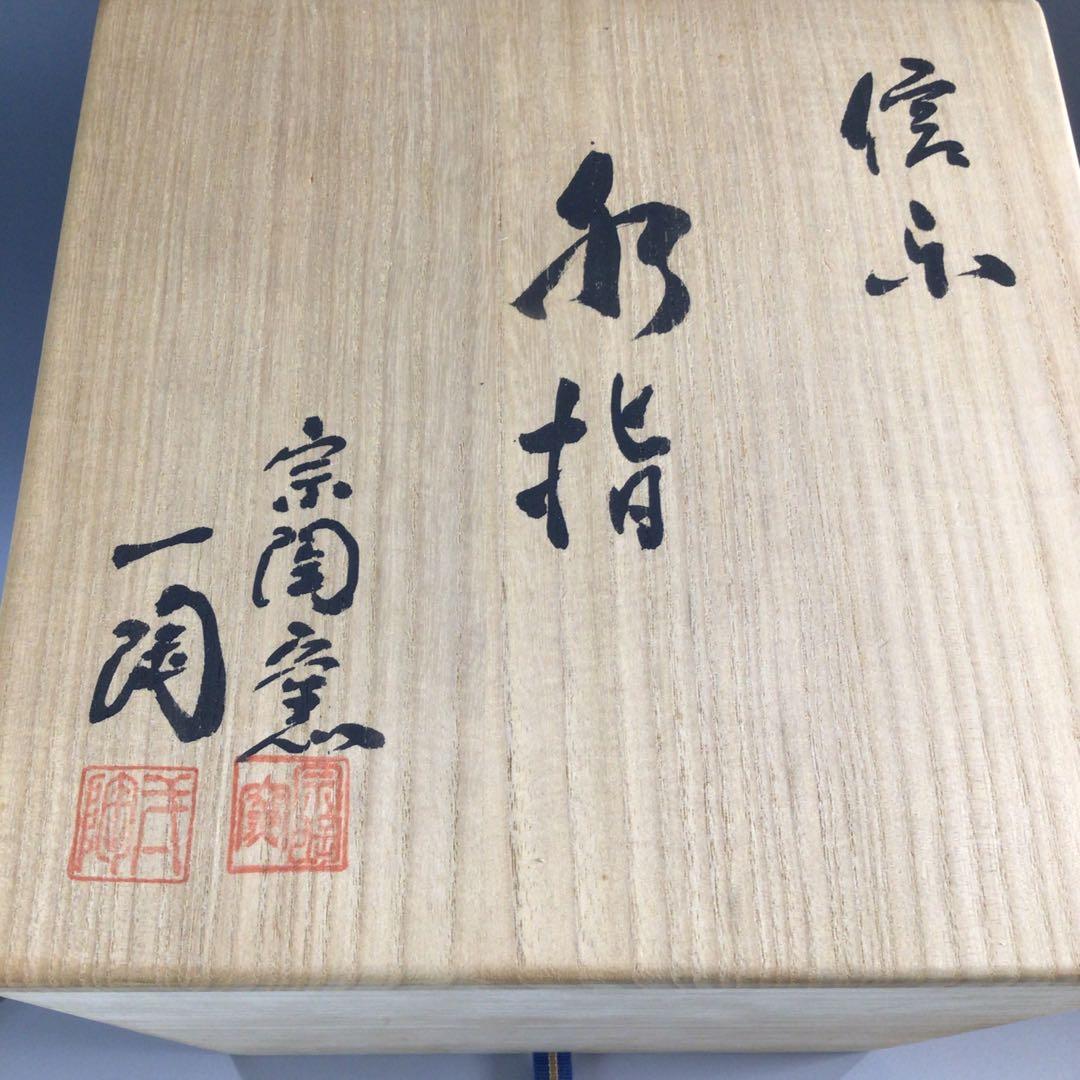 信楽
水指
宗陶窯
一陶